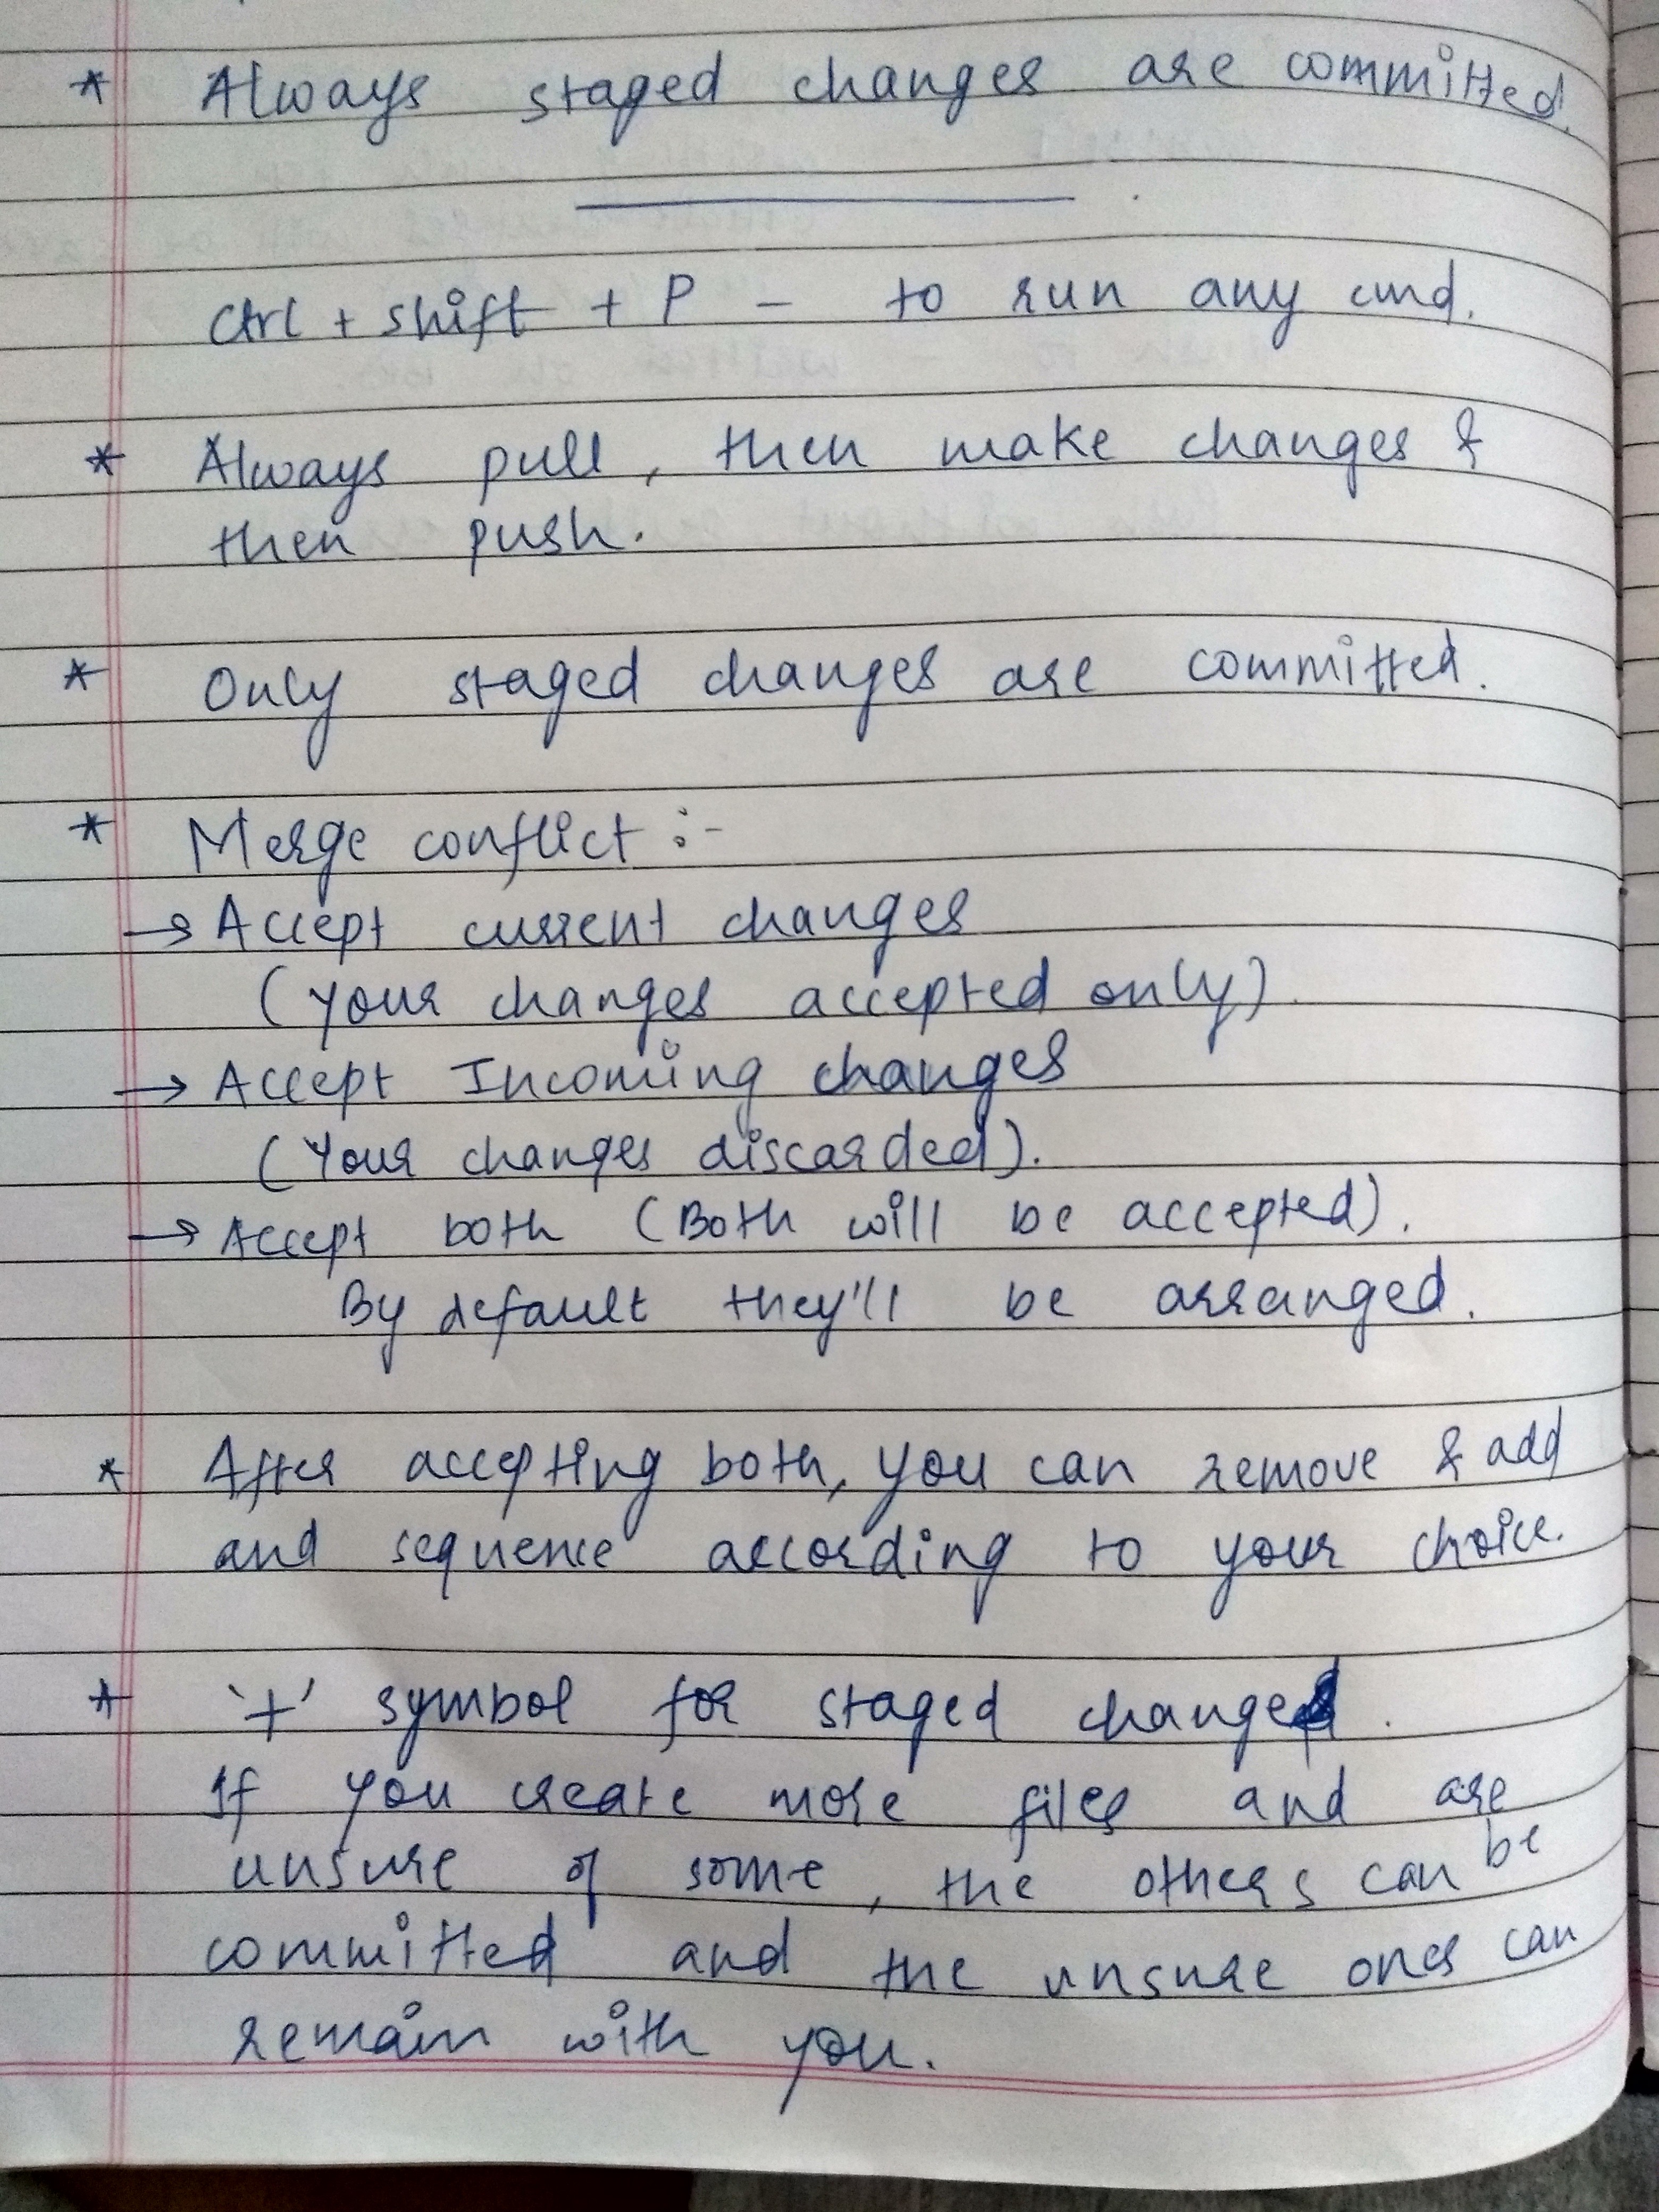 * Always staged changes are committed.
Ctrl + shift + P - to run any cmd.
* Always pull, then make changes &
then push.
* Only staged changes are committed.
* Merge conflict :-
→ Accept current changes
(Your changes accepted only).
→ Accept Incoming changes
(Your changes discarded).
→ Accept both (Both will be accepted).
By default they'll be arranged.
* After accepting both, you can remove & add
and sequence according to your choice.
* '+' symbol for staged changes.
If you create more files and are
unsure of some, the others can be
committed and the unsure ones can
remain with you.